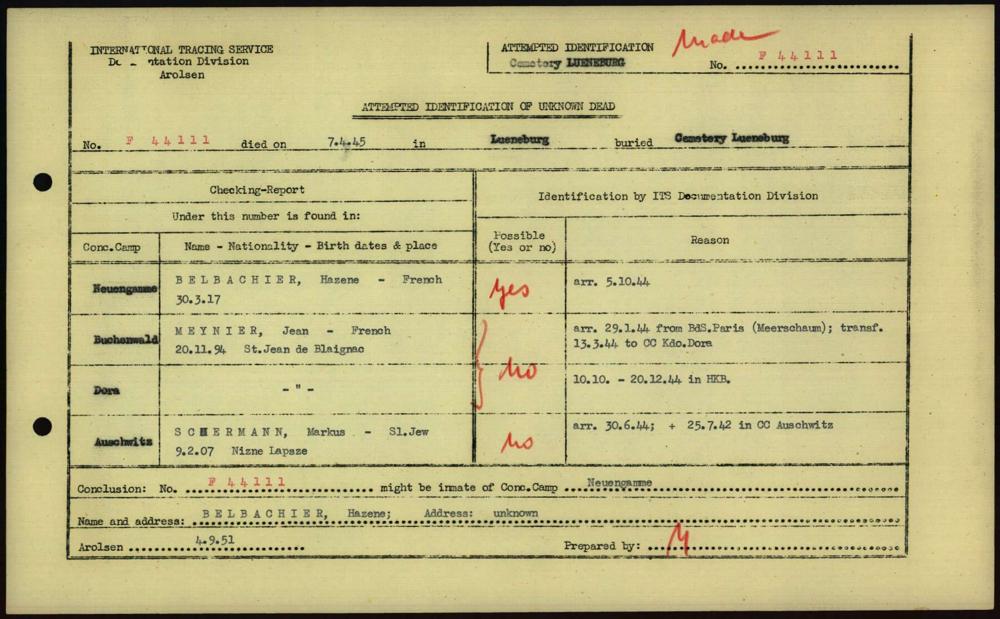 INTERNATIONAL TRACING SERVICE
Documentation Division
Arolsen
ATTEMPTED IDENTIFICATION
Cemetery LUENEBURG
Made
No. F 44111
ATTEMPTED IDENTIFICATION OF UNKNOWN DEAD
No. F 44111 died on 7.4.45 in Lueneburg buried Cemetery Lueneburg
Checking-Report
Identification by ITS Documentation Division
Under this number is found in:
Conc.Camp
Name - Nationality - Birth dates & place
Possible
(Yes or no)
Reason
Neuengamme
BELBACHIER, Hazene - French
30.3.17
yes
arr. 5.10.44
Buchenwald
MEYNIER, Jean - French
20.11.94 St.Jean de Blaignac
no
arr. 29.1.44 from BdS.Paris (Meerschaum); transf.
13.3.44 to CC Kdo.Dora
Dora
- " -
10.10. - 20.12.44 in HKB.
Auschwitz
SCHERMANN, Markus - Sl.Jew
9.2.07 Nizne Lapsze
no
arr. 30.6.44; + 25.7.42 in CC Auschwitz
Conclusion: No. F 44111 might be inmate of Conc.Camp Neuengamme
Name and address: BELBACHIER, Hazene; Address: unknown
Arolsen 4.9.51 Prepared by: